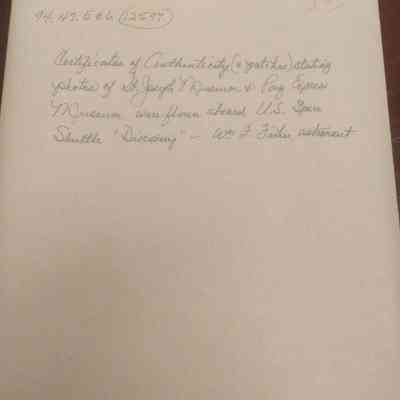 94.49.5 & 6 12597
Certificates of Authenticity (& patches) stating
photos of St Joseph Museum & Pony Express
Museum were flown aboard U.S. Space
Shuttle "Discovery" - Wm F. Fisher astronaut